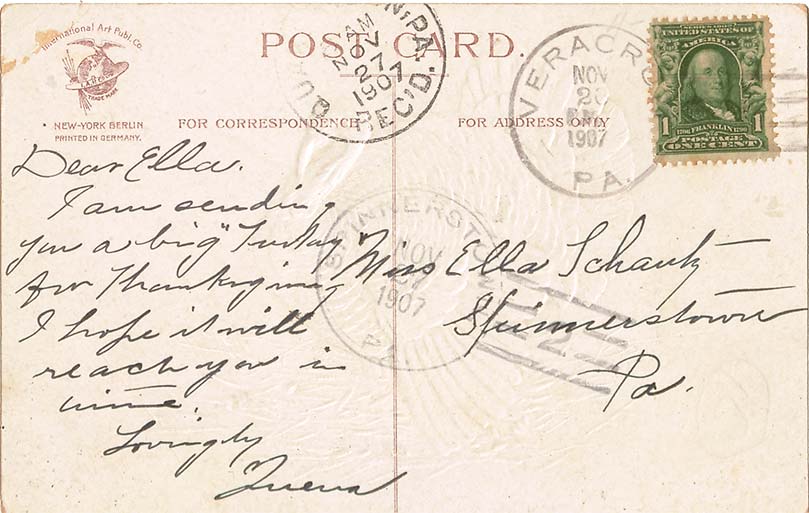 International Art Publ. Co.
TRADE MARK
NEW-YORK BERLIN
PRINTED IN GERMANY.
POST CARD.
FOR CORRESPONDENCE
FOR ADDRESS ONLY
N, PA.
AM
NOV
27
1907
REC'D.
VERACR
NOV
26
1907
PA.
SERIES 1902
UNITED STATES OF
AMERICA
1 FRANKLIN 1
POSTAGE
ONE CENT
Dear Ella.
I am sending
you a big Turkey
for Thanksgiving
I hope it will
reach you in
time.
Lovingly
SPINNERSTOWN
NOV
27
1907
PA.
Miss Ella Schantz
Spinnerstown
Pa.